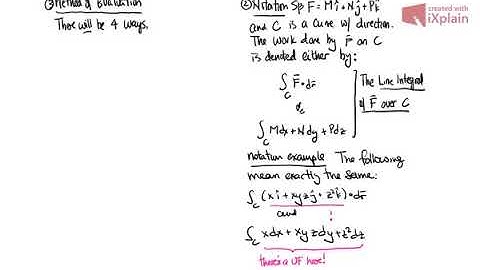 ③ Method of Evaluation
There will be 4 ways.
② Notation Sps F⃗ = Mî + Nĵ + Pk̂
and C is a curve w/ direction.
The work done by F⃗ on C
is denoted either by:
∫_C F⃗ • dr⃗
or
∫_C Mdx + Ndy + Pdz
The Line Integral
of F⃗ over C
notation example The following
mean exactly the same:
∫_C (x î + xyz ĵ + z² k̂) • dr⃗
and !
∫_C xdx + xyzdy + z²dz
there's a VF here!
created with
iXplain